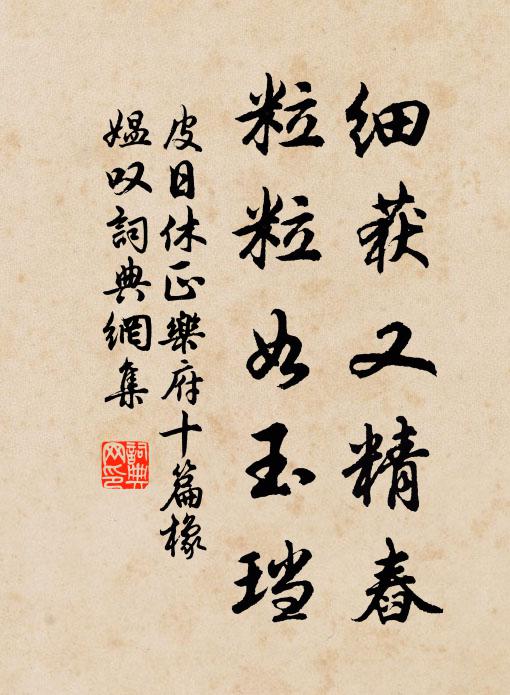 细获又精舂
粒粒如玉珰
皮日休正樂府十篇橡
媪叹詞典網集
詞典
网印